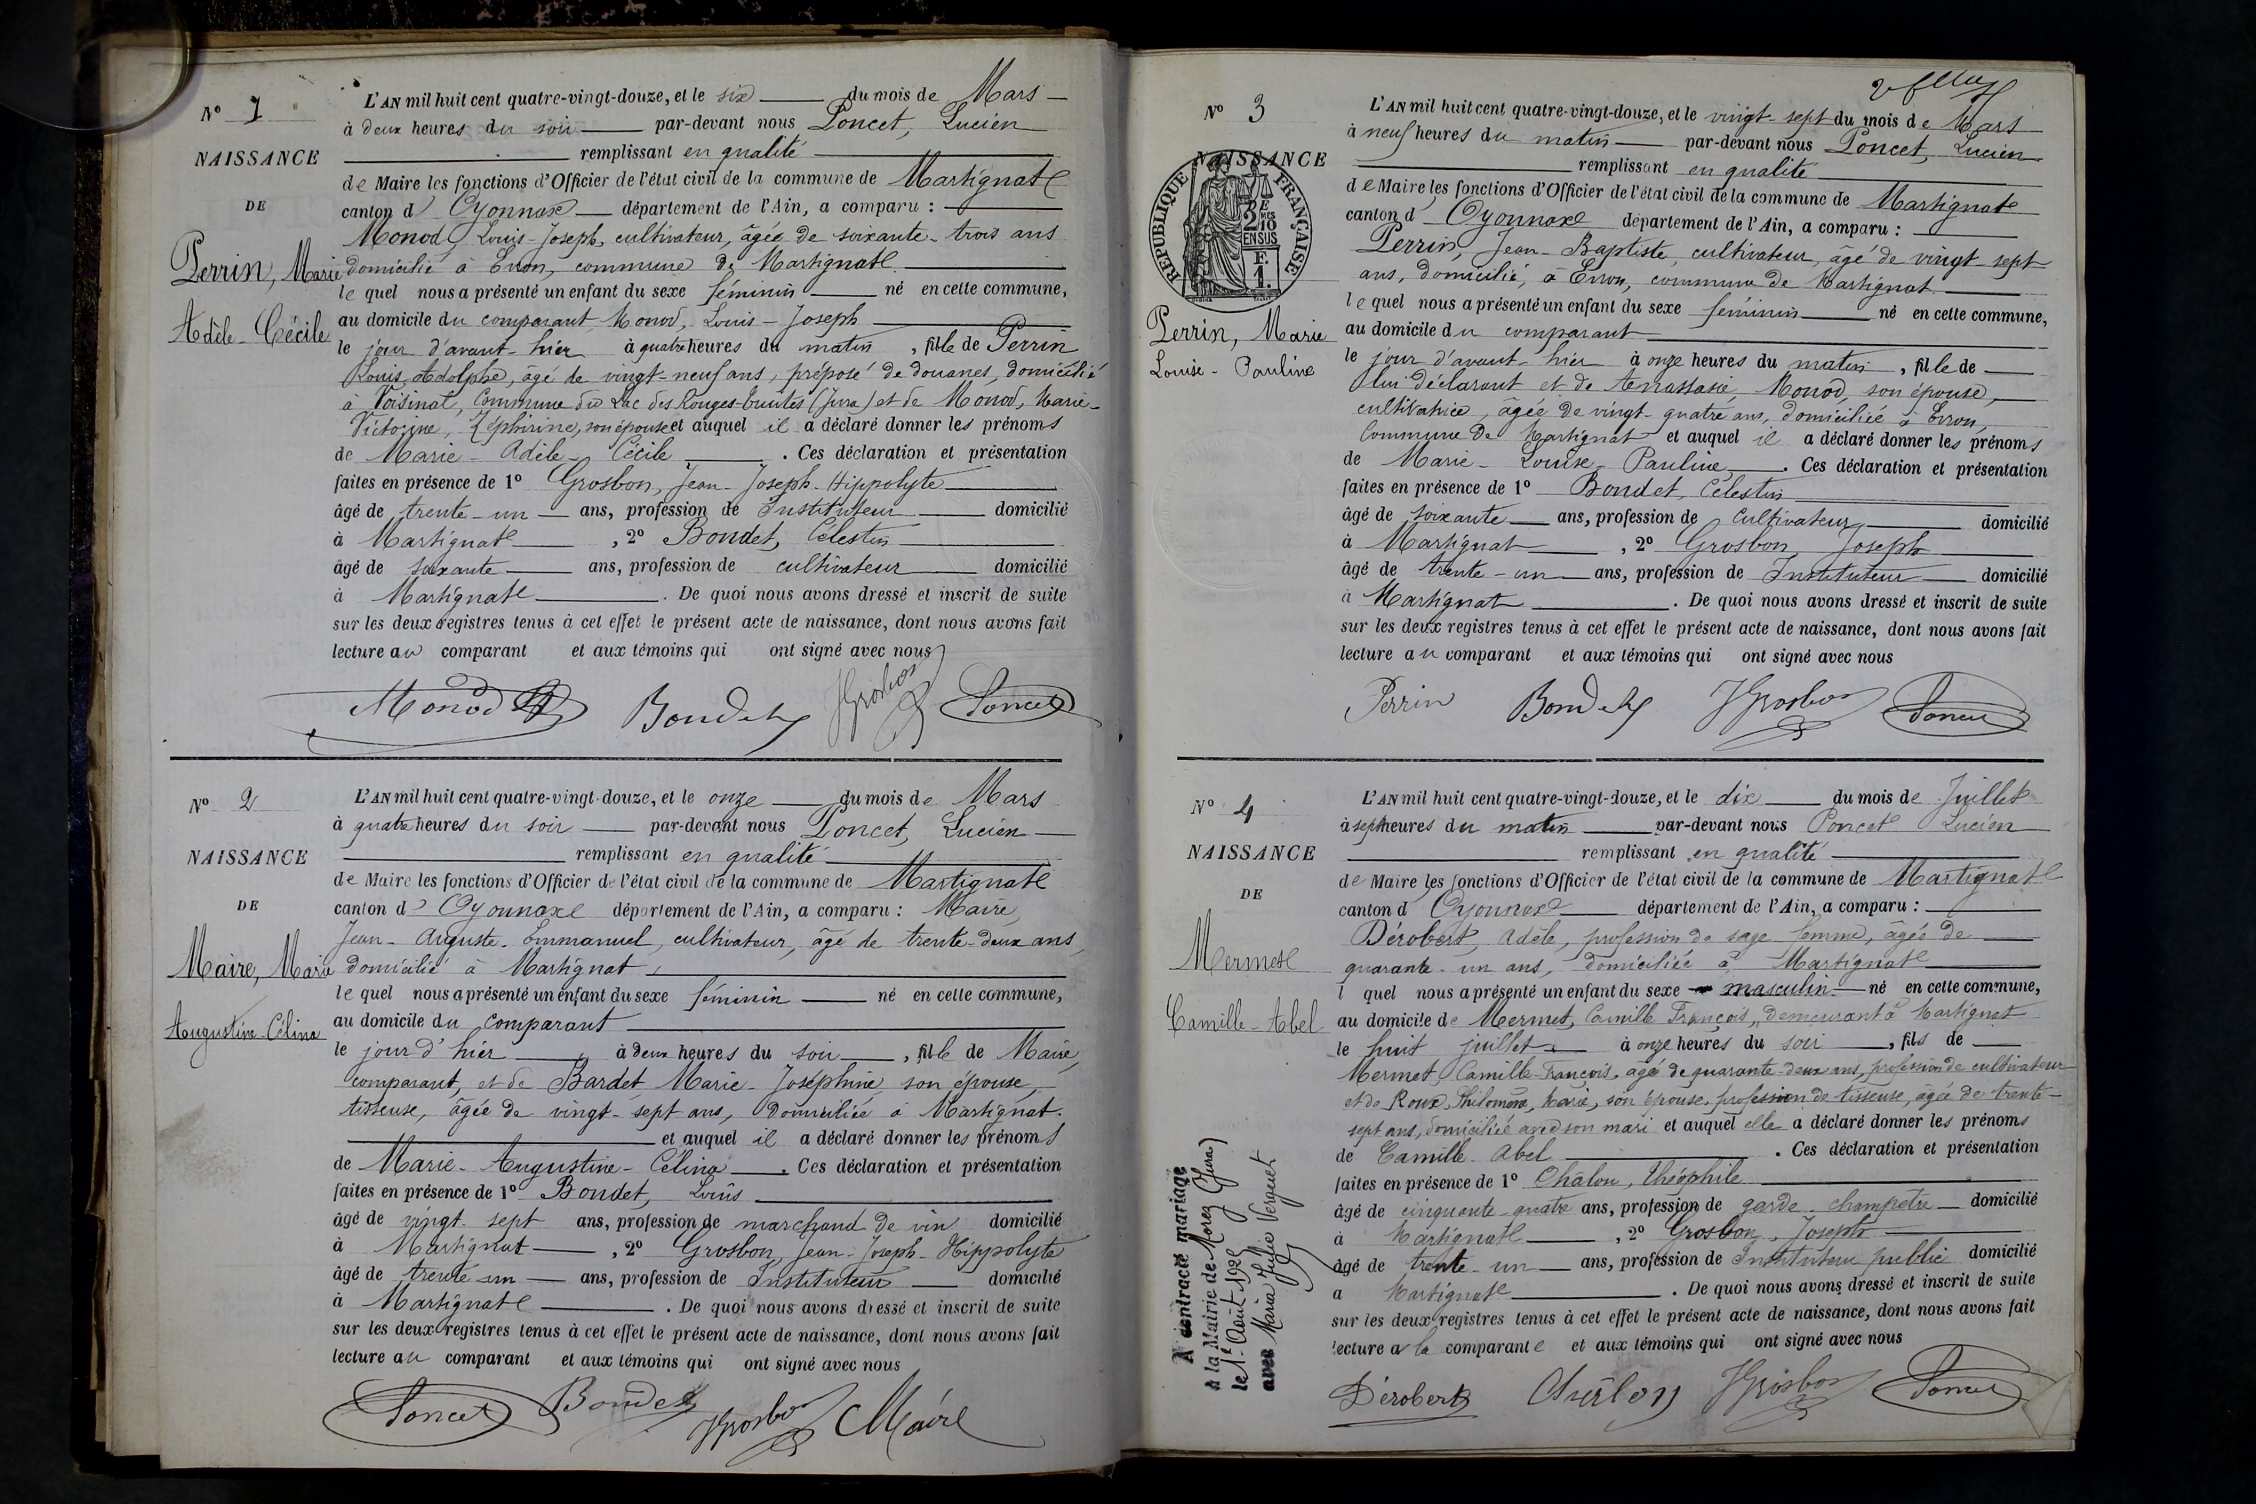 N° 1
NAISSANCE
DE
Perrin, Marie
Adèle-Cécile
L'AN mil huit cent quatre-vingt-douze, et le six du mois de Mars
à deux heures du soir par-devant nous Poncet, Lucien
remplissant en qualité
de Maire les fonctions d'Officier de l'état civil de la commune de Martignat
canton d' Oyonnax département de l'Ain, a comparu :
Monod, Louis-Joseph, cultivateur, âgé de soixante-trois ans
domicilié à Evron, commune de Martignat
le quel nous a présenté un enfant du sexe féminin né en cette commune,
au domicile du comparant Monod, Louis-Joseph
le jour d'avant-hier à quatre heures du matin, fille de Perrin
Louis Adolphe, âgé de vingt-neuf ans, préposé de douanes, domicilié
à Voisinat, Commune du Lac des Rouges-truites (Jura) et de Monod, Marie-
Victorine, Zéphirine, son épouse et auquel il a déclaré donner les prénoms
de Marie-Adèle-Cécile. Ces déclaration et présentation
faites en présence de 1° Grosbon, Jean-Joseph-Hippolyte
âgé de trente-un ans, profession de Instituteur domicilié
à Martignat, 2° Bondet, Célestin
âgé de soixante ans, profession de cultivateur domicilié
à Martignat. De quoi nous avons dressé et inscrit de suite
sur les deux registres tenus à cet effet le présent acte de naissance, dont nous avons fait
lecture au comparant et aux témoins qui ont signé avec nous
Monod Bondet JGrosbon Poncet
N° 2
NAISSANCE
DE
Maire, Marie
Augustine-Célina
L'AN mil huit cent quatre-vingt-douze, et le onze du mois de Mars
à quatre heures du soir par-devant nous Poncet, Lucien
remplissant en qualité
de Maire les fonctions d'Officier de l'état civil de la commune de Martignat
canton d' Oyonnax département de l'Ain, a comparu : Maire,
Jean-Auguste-Emmanuel, cultivateur, âgé de trente-deux ans,
domicilié à Martignat,
le quel nous a présenté un enfant du sexe féminin né en cette commune,
au domicile du comparant
le jour d'hier à deux heures du soir, fille de Maire,
comparant, et de Bardet Marie-Joséphine son épouse,
tisseuse, âgée de vingt-sept ans, domiciliée à Martignat.
et auquel il a déclaré donner les prénoms
de Marie-Augustine-Célina. Ces déclaration et présentation
faites en présence de 1° Bondet, Louis
âgé de vingt-sept ans, profession de marchand de vin domicilié
à Martignat, 2° Grosbon, Jean-Joseph-Hippolyte
âgé de trente un ans, profession de Instituteur domicilié
à Martignat. De quoi nous avons dressé et inscrit de suite
sur les deux registres tenus à cet effet le présent acte de naissance, dont nous avons fait
lecture au comparant et aux témoins qui ont signé avec nous
Poncet Bondet JGrosbon Maire
N° 3
NAISSANCE
RÉPUBLIQUE FRANÇAISE
2 E MES 10 EN SUS
F. 1.
Perrin, Marie
Louise-Pauline
L'AN mil huit cent quatre-vingt-douze, et le vingt-sept du mois de Mars
à neuf heures du matin par-devant nous Poncet, Lucien
remplissant en qualité
de Maire les fonctions d'Officier de l'état civil de la commune de Martignat
canton d' Oyonnax département de l'Ain, a comparu :
Perrin, Jean-Baptiste, cultivateur, âgé de vingt-sept
ans, domicilié, à Evron, commune de Martignat
le quel nous a présenté un enfant du sexe féminin né en cette commune,
au domicile du comparant
le jour d'avant-hier à onze heures du matin, fille de
lui déclarant et de Anastasie, Monod, son épouse,
cultivatrice, âgée de vingt-quatre ans, domiciliée à Evron,
Commune de Martignat et auquel il a déclaré donner les prénoms
de Marie-Louise-Pauline. Ces déclaration et présentation
faites en présence de 1° Bondet, Célestin
âgé de soixante ans, profession de Cultivateur domicilié
à Martignat, 2° Grosbon, Joseph
âgé de trente-un ans, profession de Instituteur domicilié
à Martignat. De quoi nous avons dressé et inscrit de suite
sur les deux registres tenus à cet effet le présent acte de naissance, dont nous avons fait
lecture au comparant et aux témoins qui ont signé avec nous
Perrin Bondet JGrosbon Poncet
N° 4
NAISSANCE
DE
Mermet
Camille-Abel
A contracté mariage
à la Mairie de Morez (Jura)
le 1er Août 1922
avec Maria Julie Verguet
L'AN mil huit cent quatre-vingt-douze, et le dix du mois de Juillet
à sept heures du matin par-devant nous Poncet Lucien
remplissant en qualité
de Maire les fonctions d'Officier de l'état civil de la commune de Martignat
canton d' Oyonnax département de l'Ain, a comparu :
Dérobert, Adèle, profession de sage femme, âgée de
quarante-un ans, domiciliée à Martignat
l quel nous a présenté un enfant du sexe masculin né en cette commune,
au domicile de Mermet, Camille François, demeurant à Martignat
le huit juillet à onze heures du soir, fils de
Mermet, Camille-François, âgé de quarante-deux ans, profession de cultivateur
et de Roux, Philomène, Marie, son épouse, profession de tisseuse, âgée de trente-
sept ans, domiciliée avec son mari et auquel elle a déclaré donner les prénoms
de Camille-Abel. Ces déclaration et présentation
faites en présence de 1° Chalon, Théophile
âgé de cinquante-quatre ans, profession de garde-champêtre domicilié
à Martignat, 2° Grosbon, Joseph
âgé de trente-un ans, profession de Instituteur public domicilié
a Martignat. De quoi nous avons dressé et inscrit de suite
sur les deux registres tenus à cet effet le présent acte de naissance, dont nous avons fait
lecture a la comparante et aux témoins qui ont signé avec nous
Dérobert Châlon JGrosbon Poncet